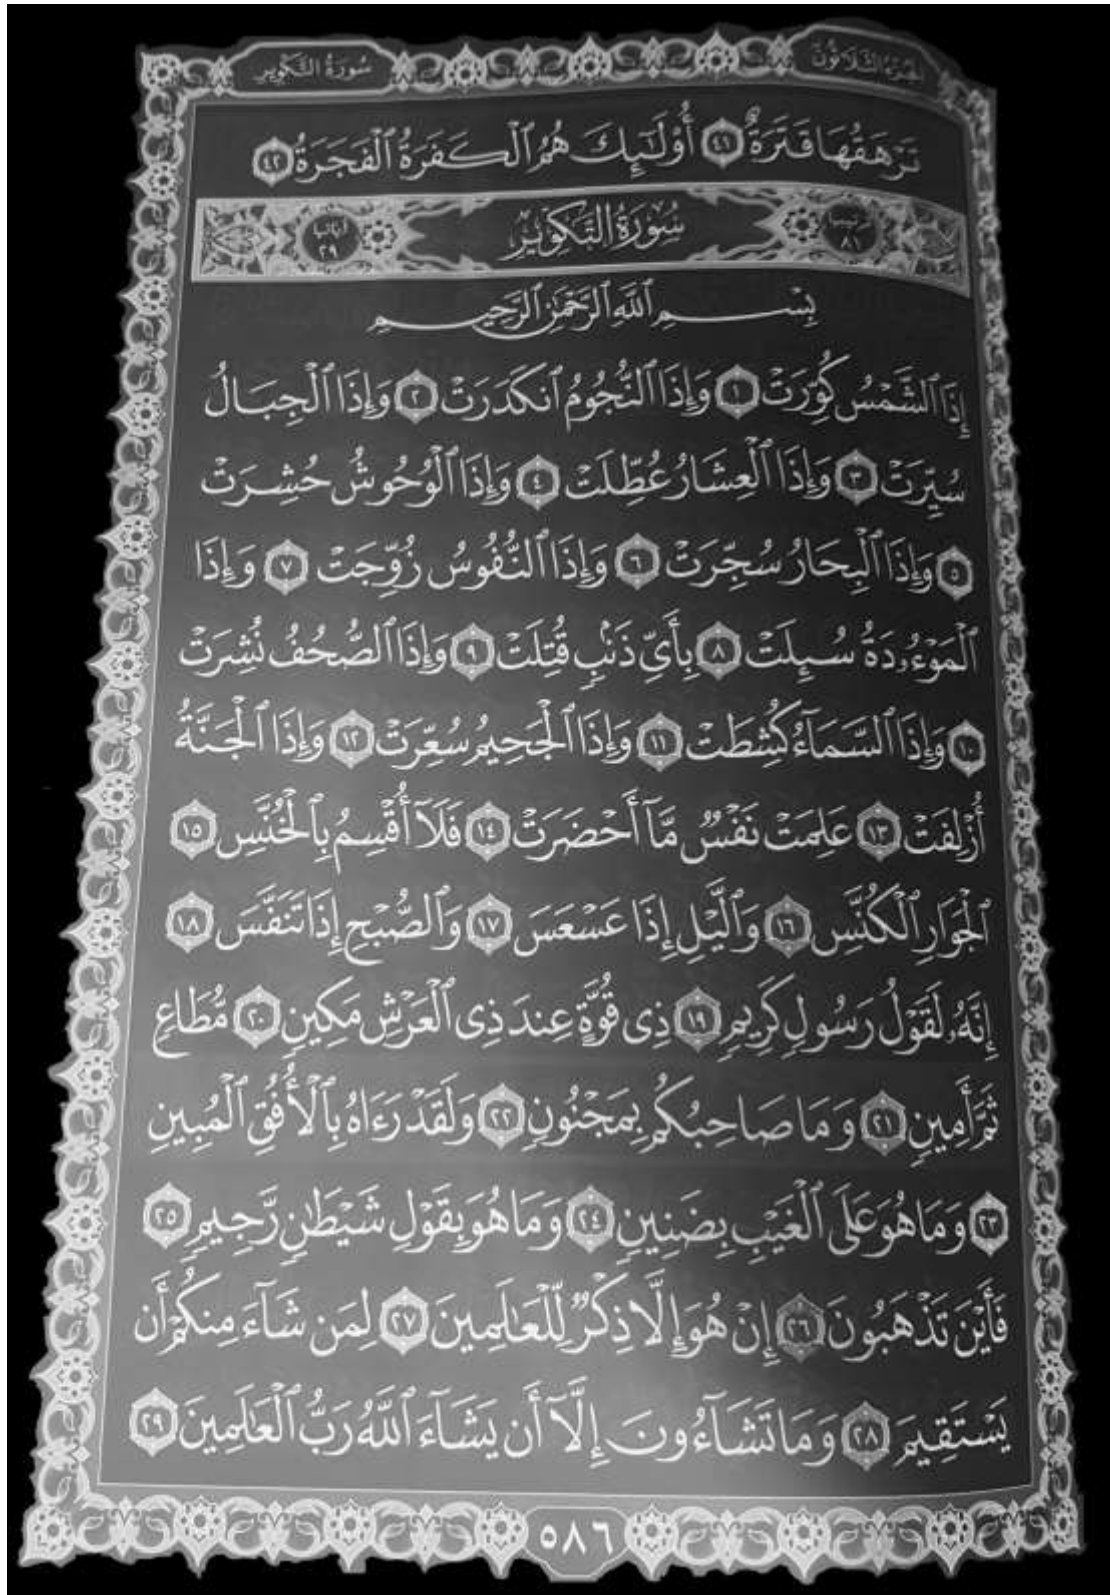 الجزء الثلاثون
سورة التكوير
تَرْهَقُهَا قَتَرَةٌ ٤١ أُوْلَٰٓئِكَ هُمُ ٱلْكَفَرَةُ ٱلْفَجَرَةُ ٤٢
ترتيبها ٨١
سُورَةُ التَّكْوِيرِ
آياتها ٢٩
بِسْمِ ٱللَّهِ ٱلرَّحْمَٰنِ ٱلرَّحِيمِ
إِذَا ٱلشَّمْسُ كُوِّرَتْ ١ وَإِذَا ٱلنُّجُومُ ٱنكَدَرَتْ ٢ وَإِذَا ٱلْجِبَالُ
سُيِّرَتْ ٣ وَإِذَا ٱلْعِشَارُ عُطِّلَتْ ٤ وَإِذَا ٱلْوُحُوشُ حُشِرَتْ
٥ وَإِذَا ٱلْبِحَارُ سُجِّرَتْ ٦ وَإِذَا ٱلنُّفُوسُ زُوِّجَتْ ٧ وَإِذَا
ٱلْمَوْءُۥدَةُ سُئِلَتْ ٨ بِأَيِّ ذَنۢبٍ قُتِلَتْ ٩ وَإِذَا ٱلصُّحُفُ نُشِرَتْ
١٠ وَإِذَا ٱلسَّمَآءُ كُشِطَتْ ١١ وَإِذَا ٱلْجَحِيمُ سُعِّرَتْ ١٢ وَإِذَا ٱلْجَنَّةُ
أُزْلِفَتْ ١٣ عَلِمَتْ نَفْسٌ مَّآ أَحْضَرَتْ ١٤ فَلَآ أُقْسِمُ بِٱلْخُنَّسِ ١٥
ٱلْجَوَارِ ٱلْكُنَّسِ ١٦ وَٱلَّيْلِ إِذَا عَسْعَسَ ١٧ وَٱلصُّبْحِ إِذَا تَنَفَّسَ ١٨
إِنَّهُۥ لَقَوْلُ رَسُولٍ كَرِيمٍ ١٩ ذِى قُوَّةٍ عِندَ ذِى ٱلْعَرْشِ مَكِينٍ ٢٠ مُّطَاعٍ
ثَمَّ أَمِينٍ ٢١ وَمَا صَاحِبُكُم بِمَجْنُونٍ ٢٢ وَلَقَدْ رَءَاهُ بِٱلْأُفُقِ ٱلْمُبِينِ
٢٣ وَمَا هُوَ عَلَى ٱلْغَيْبِ بِضَنِينٍ ٢٤ وَمَا هُوَ بِقَوْلِ شَيْطَٰنٍ رَّجِيمٍ ٢٥
فَأَيْنَ تَذْهَبُونَ ٢٦ إِنْ هُوَ إِلَّا ذِكْرٌ لِّلْعَٰلَمِينَ ٢٧ لِمَن شَآءَ مِنكُمْ أَن
يَسْتَقِيمَ ٢٨ وَمَا تَشَآءُونَ إِلَّآ أَن يَشَآءَ ٱللَّهُ رَبُّ ٱلْعَٰلَمِينَ ٢٩
٥٨٦